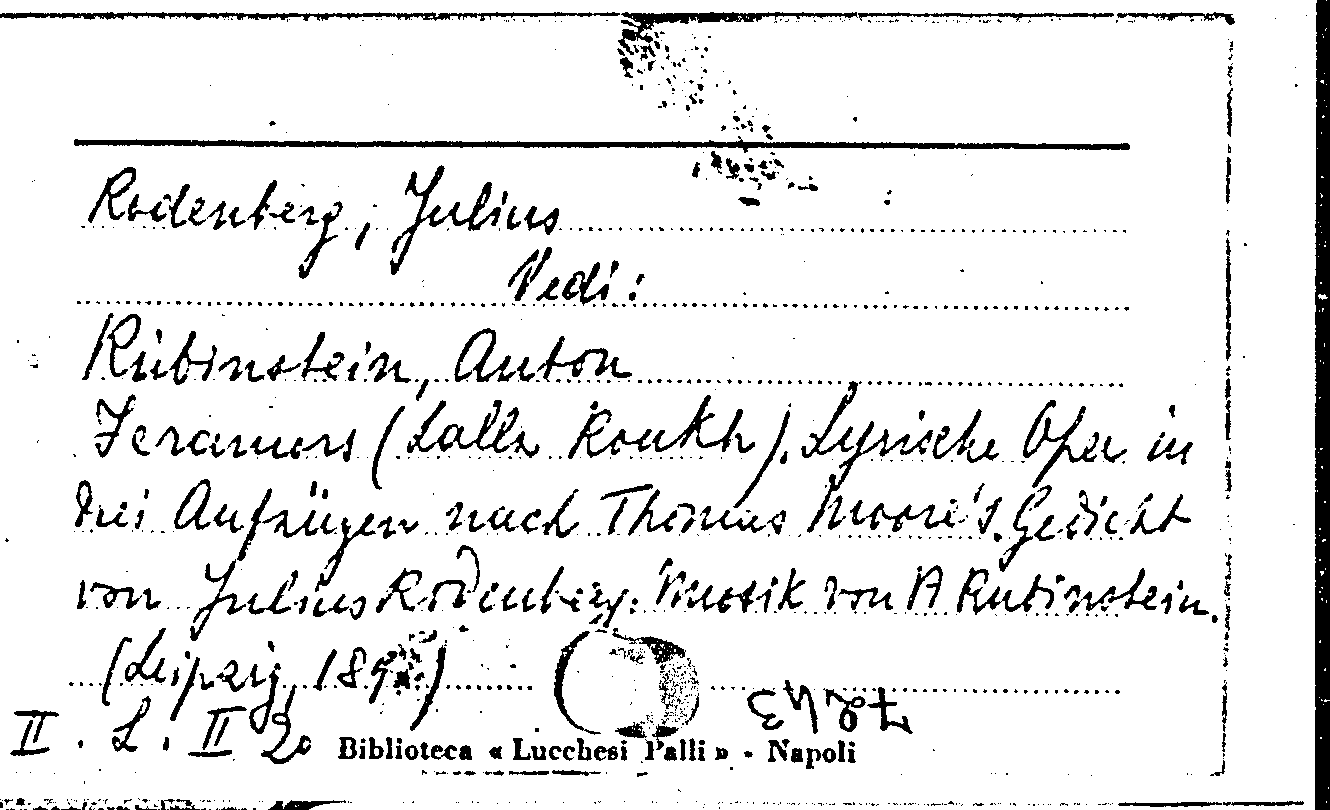 Rodenberg, Julius
Vedi:
Rubinstein, Anton
Feramors (Lalla Roukh). Lyrische Oper in
drei Aufzügen nach Thomas Moore's Gedicht
von Julius Rodenberg. Musik von A Rubinstein.
(Leipzig, 189
II. L. II 20 Biblioteca « Lucchesi Palli » - Napoli